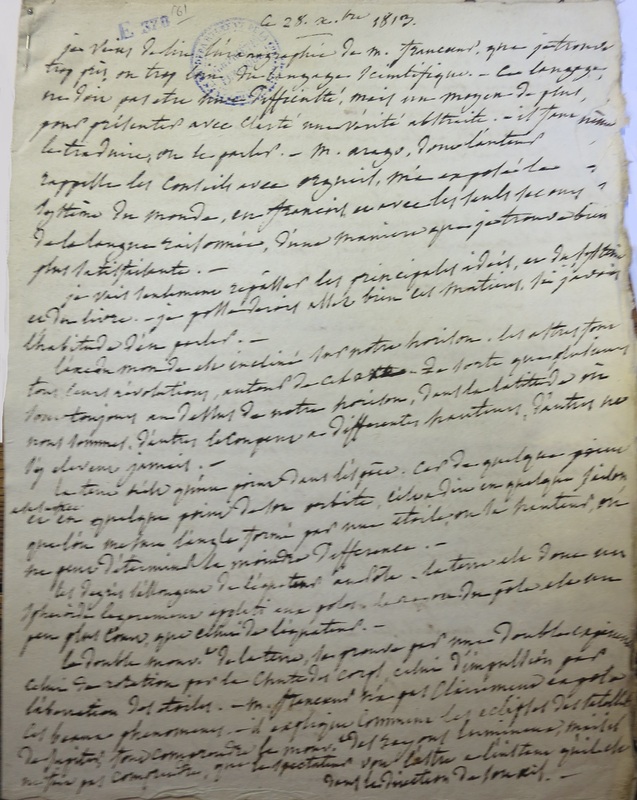 E 378 61
Ce 28. x.bre 1813.
je viens de lire l'uranographie de m. francœur, que je trouve
trop près ou trop loin du langage scientifique. - Ce langage,
ne doit pas être une difficulté, mais un moyen de plus,
pour présenter avec clarté une vérité abstraite. - il faut même
le traduire, ou le parler. - M. arago, dont
rappelle les conseils avec orgueil, m'a exposé le
système du monde, en françois, et avec les seuls secours
de la langue raisonnée, d'une manière que je trouve bien
plus satisfaisante. -
je vais seulement repasser les principales idées, et du système
et du livre. - je possederois assez bien ces matières, si j'avois
l'habitude d'en parler. -
l'axe du monde est incliné sur notre horison. les astres font
tous leurs révolutions, autour de cet axe - De sorte que plusieurs
sont toujours au dessus de notre horison, dans la latitude où
nous sommes. d'autres le coupent à différentes hauteurs, d'autres ne
s'y elevent jamais. -
la terre n'est qu'un point dans l'espace. Car de quelque point
et en quelque point de son orbite, c'est à dire en quelque saison
que l'on mesure l'angle formé par une étoile, ou la hauteur, on
ne peut determiner la moindre difference. -
les degrés s'allongent de l'équateur au pôle - la terre est donc un
sphéroïde legerement applati aux poles. le rayon du pôle est un
peu plus court, que celui de l'équateur. -
le double mouv.t de la terre, se prouve par une double expérience
celui de rotation par la chute des corps, celui d'impulsion par
l'aberration des étoiles. - M. francœur n'a pas clairement exposé
ces beaux phenomenes. - il explique comment les eclipses des satellites
de jupiter, font comprendre le mouv.t des rayons lumineux, mais il
ne fait pas comprendre, que le spectateur voit l'astre a l'instant qu'il est
dans la direction de son œil. -